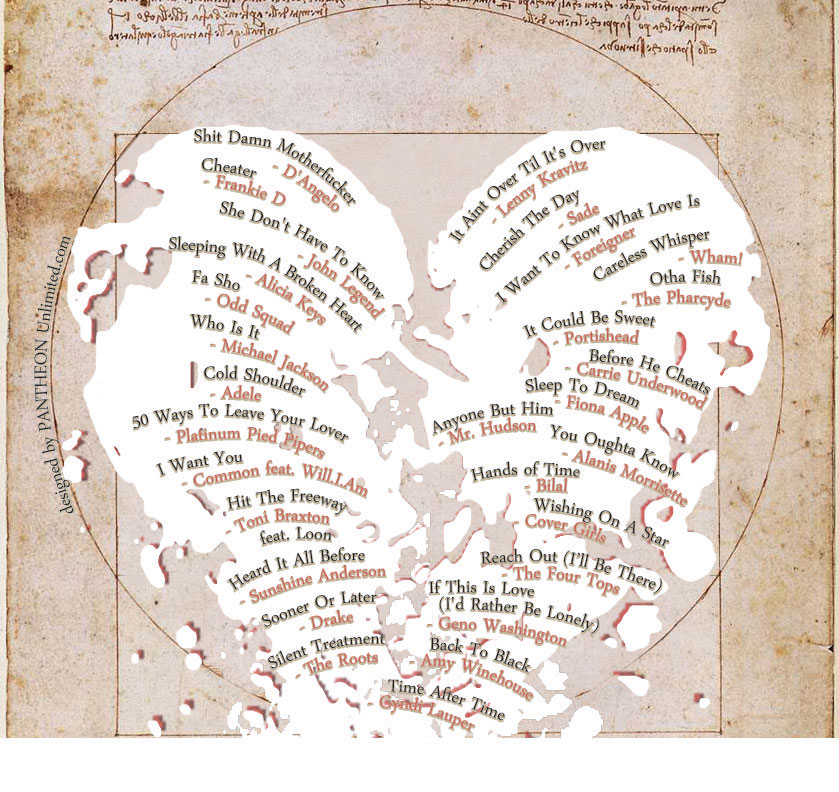 Shit Damn Motherfucker
- D'Angelo
Cheater
- Frankie D
She Don't Have To Know
- John Legend
Sleeping With A Broken Heart
- Alicia Keys
Fa Sho
- Odd Squad
Who Is It
- Michael Jackson
Cold Shoulder
- Adele
50 Ways To Leave Your Lover
- Platinum Pied Pipers
I Want You
- Common feat. Will.I.Am
Hit The Freeway
- Toni Braxton
feat. Loon
Heard It All Before
- Sunshine Anderson
Sooner Or Later
- Drake
Silent Treatment
- The Roots
It Aint Over Til It's Over
- Lenny Kravitz
Cherish The Day
- Sade
I Want To Know What Love Is
- Foreigner
Careless Whisper
- Wham!
Otha Fish
- The Pharcyde
It Could Be Sweet
- Portishead
Before He Cheats
- Carrie Underwood
Sleep To Dream
- Fiona Apple
Anyone But Him
- Mr. Hudson
You Oughta Know
- Alanis Morrisette
Hands of Time
- Bilal
Wishing On A Star
- Cover Girls
Reach Out (I'll Be There)
- The Four Tops
If This Is Love
(I'd Rather Be Lonely)
- Geno Washington
Back To Black
- Amy Winehouse
Time After Time
- Cyndi Lauper
designed by PANTHEON Unlimited.com